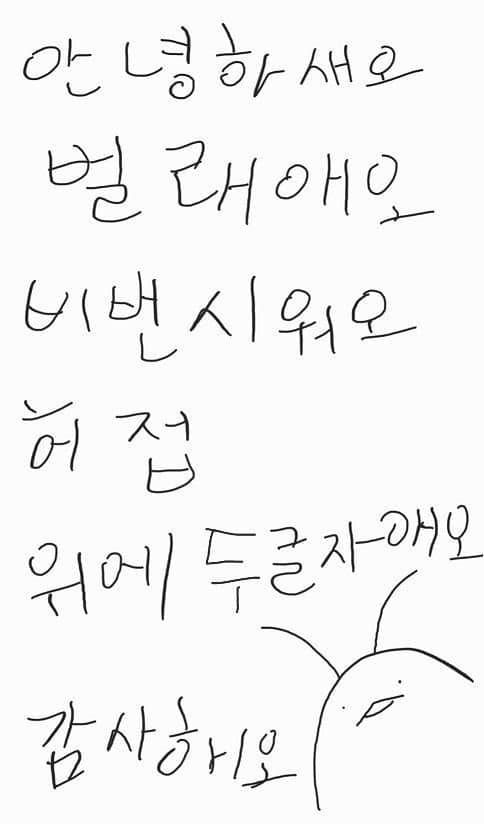 안녕하새오
벌래애오
비번시워오
허접
위에두글자애오
감사하이오